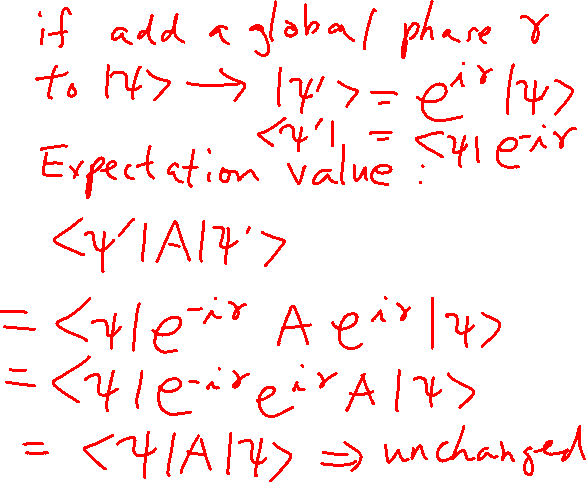 if add a global phase γ
to |ψ> → |ψ'> = e^{iγ} |ψ>
<ψ'| = <ψ| e^{-iγ}
Expectation value :
<ψ'|A|ψ'>
= <ψ| e^{-iγ} A e^{iγ} |ψ>
= <ψ| e^{-iγ} e^{iγ} A |ψ>
= <ψ|A|ψ> ⇒ unchanged